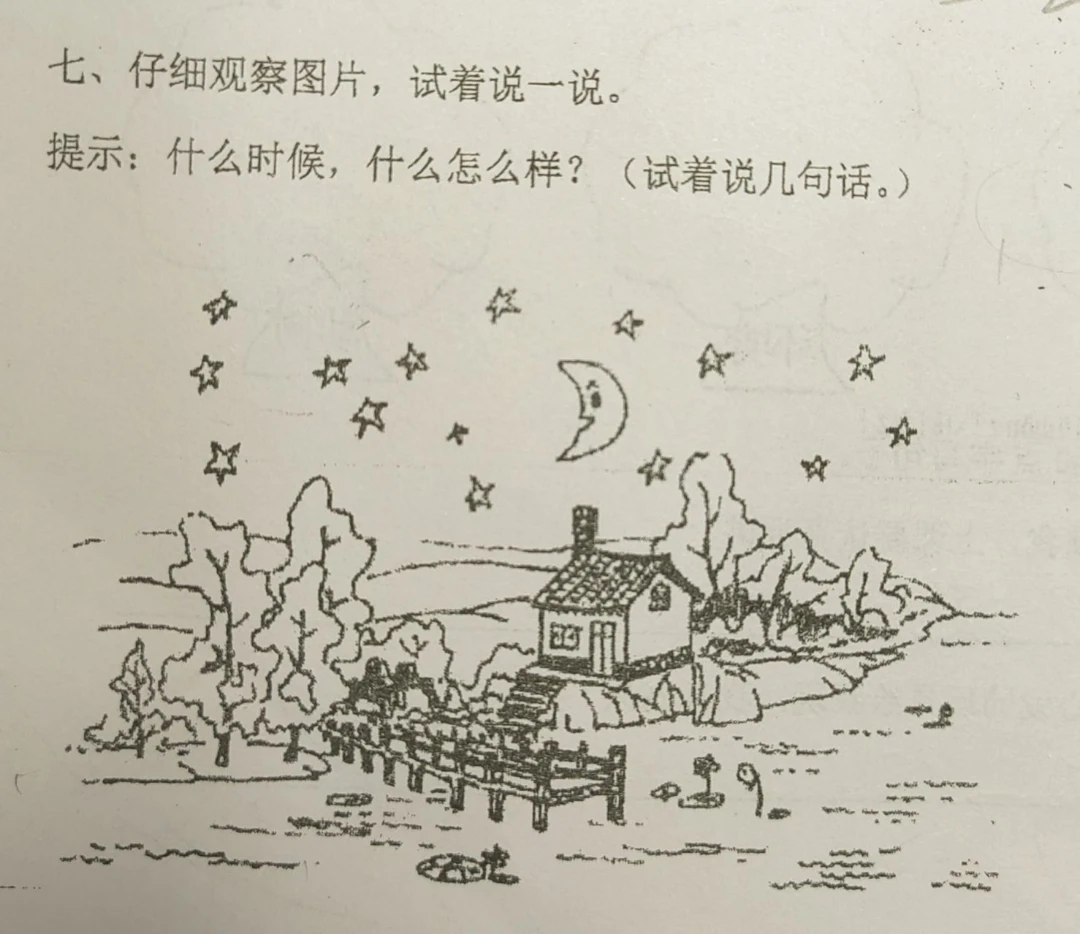 七、仔细观察图片，试着说一说。
提示：什么时候，什么怎么样？（试着说几句话。）